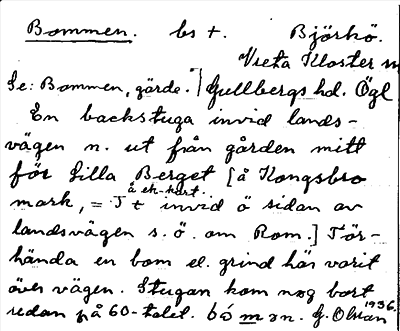 Bommen. bs t. Björkö.
Vreta Kloster
Se: Bommen, gärde. Gullbergs hd. Ögl
En backstuga invid lands-
vägen n. ut från gården mitt
för Lilla Berget [å Kongsbro
å ek. kart.
mark, = T t invid ö sidan av
landsvägen s. ö. om Rom.] För-
hända en bom el. grind här varit
över vägen. Stugan kom nog bort
redan på 60-talet. G. Olsson 1936.